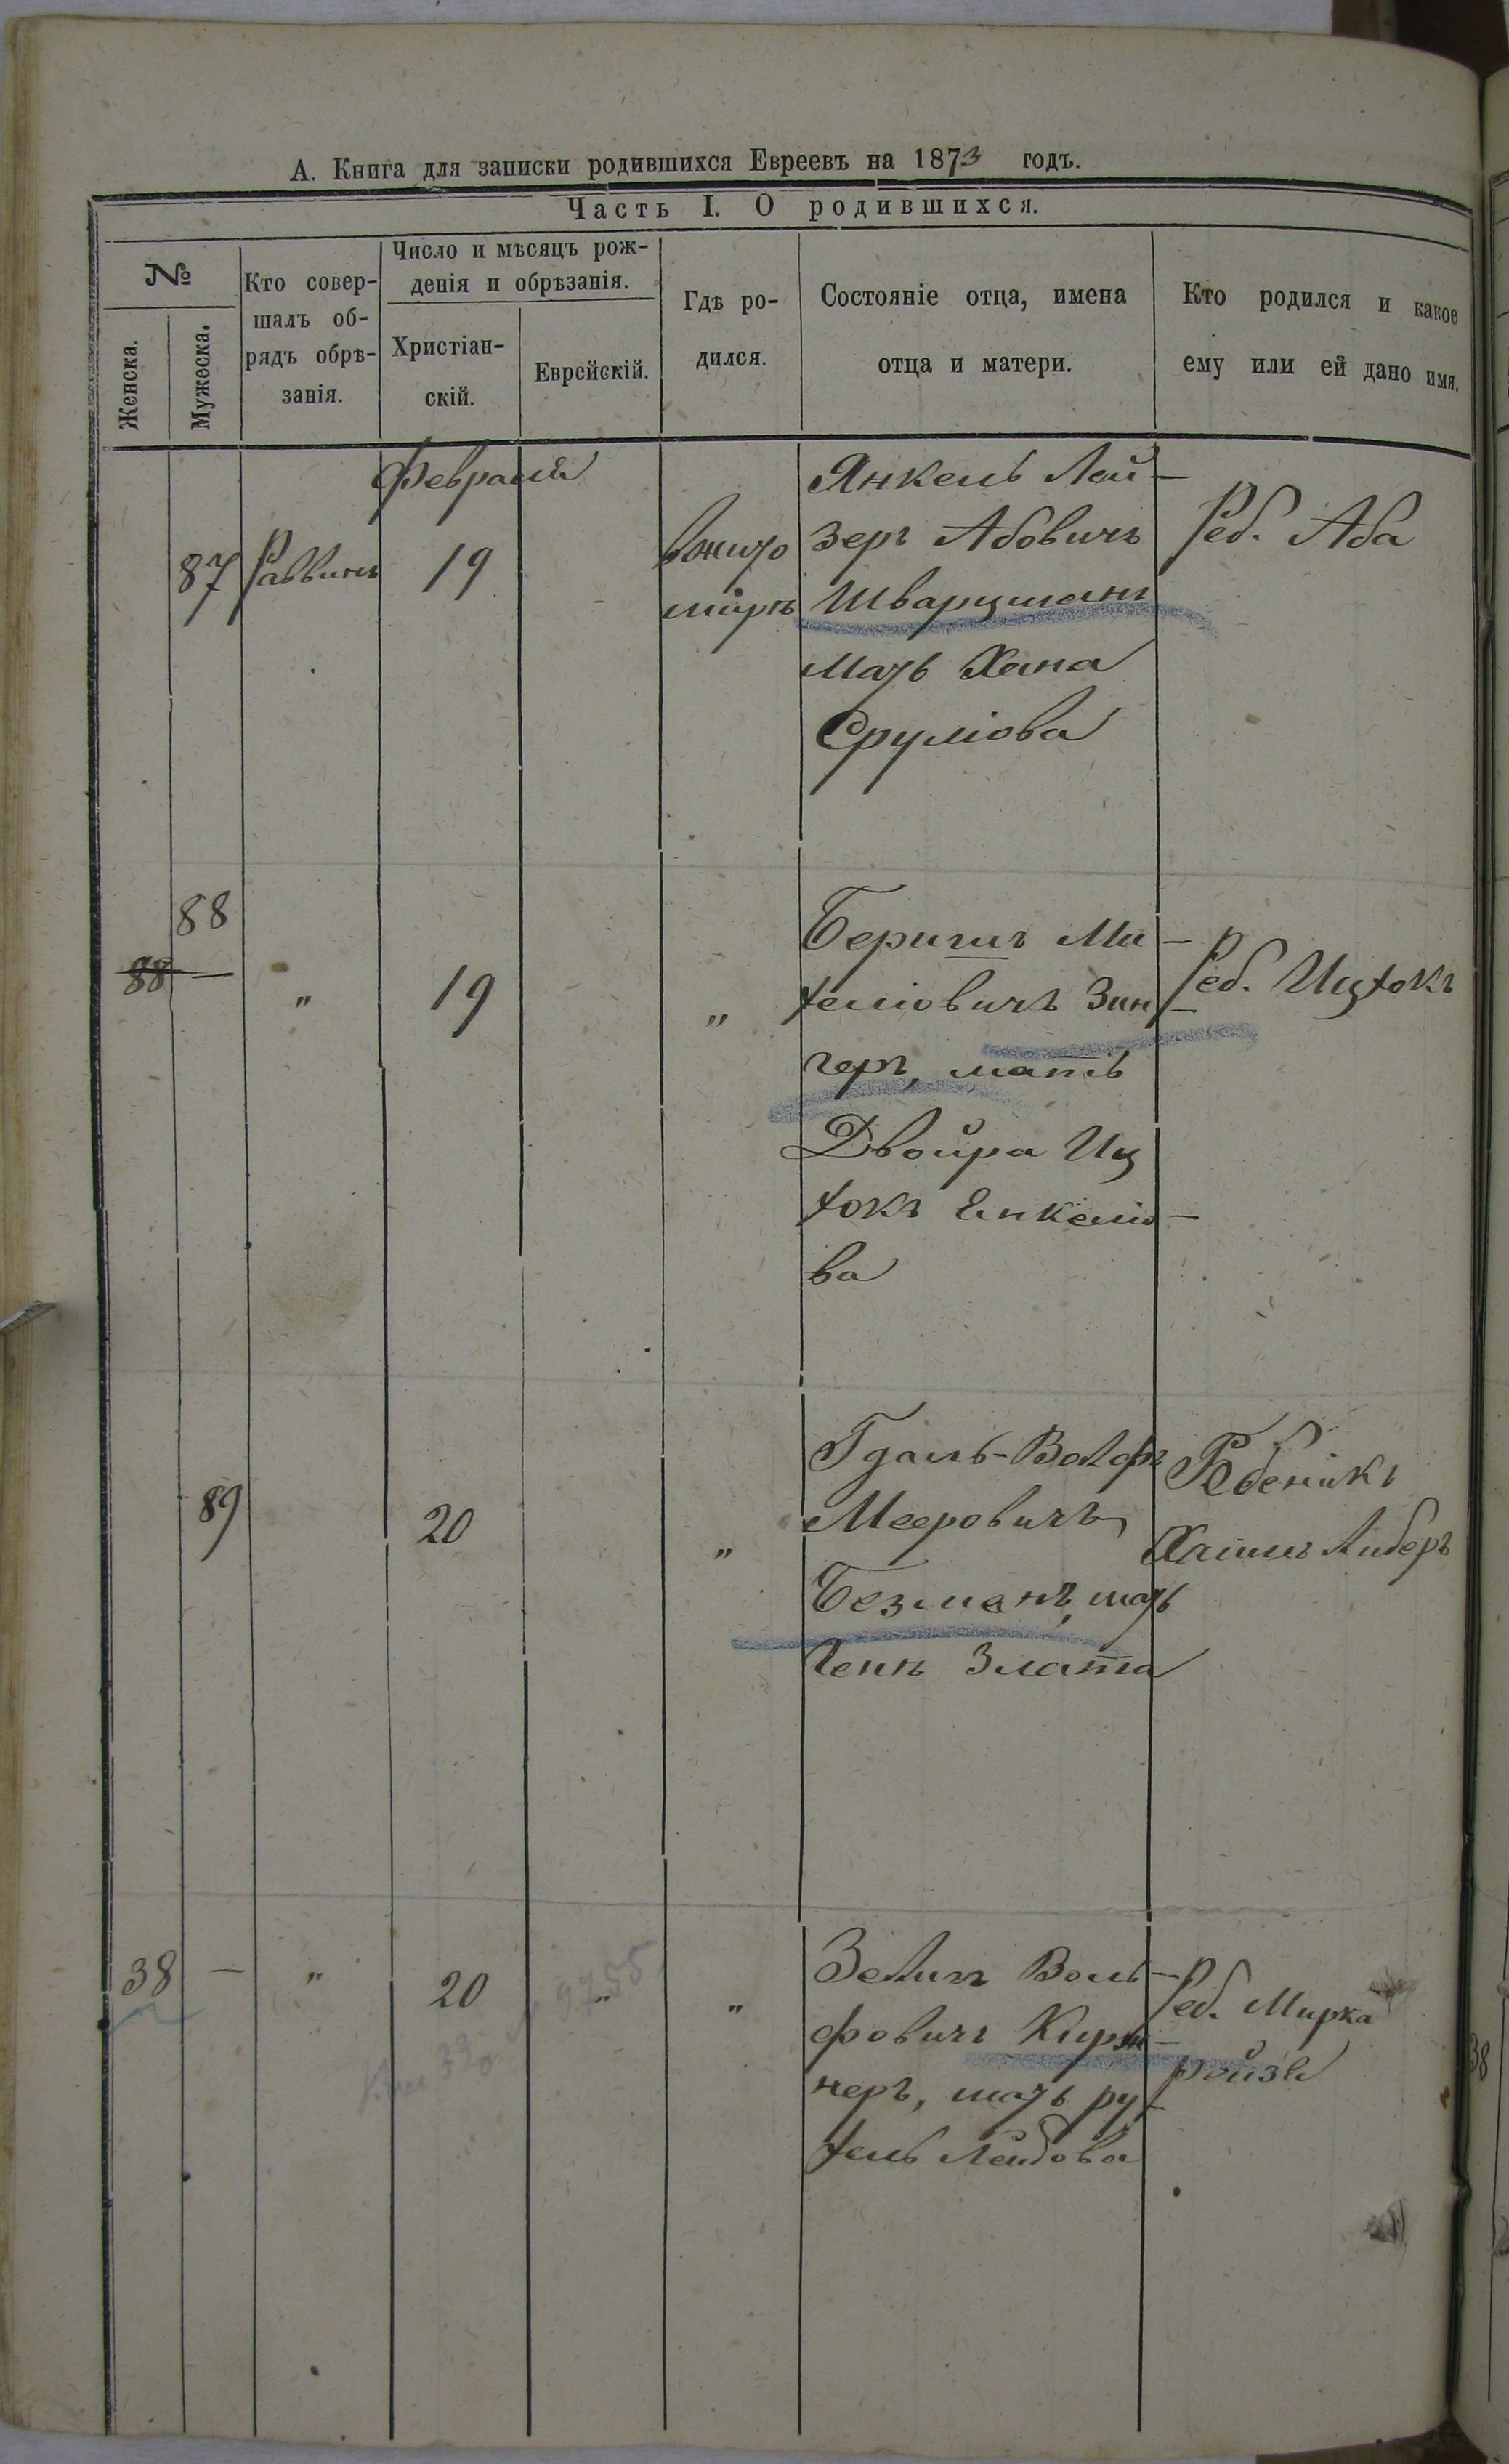 А. Книга для записки родившихся Евреевъ на 1873 годъ.
Часть I. О родившихся.
№
Женска.
Мужеска.
Кто совер-
шалъ об-
рядъ обрѣ-
занія.
Число и мѣсяцъ рож-
денія и обрѣзанія.
Христіан-
скій.
Еврейскій.
Гдѣ ро-
дился.
Состояніе отца, имена
отца и матери.
Кто родился и какое
ему или ей дано имя.
Февраля
87 Раввинъ 19
вжито
мірѣ
Янкель Лей-
зеръ Абовичъ
Шварцманъ
мать Хана
Сруліова
Реб. Аба
88
88 — " 19 "
Беришъ Ми-
хеліовичъ Зин-
геръ, мать
Двойра Иц
хокъ Енкеліо-
ва
Реб. Ицхокъ
89 20 "
Гдаль-Волфъ
Мееровичъ
Безманъ, мать
Геня Злата
Ребенокъ
Хаимъ Либеръ
38 — " 20 " "
9755
Зелигъ Воль-
фовичъ Кирж-
неръ, мать ру-
хель Лейбова
Реб. Мирка
ройзя
38